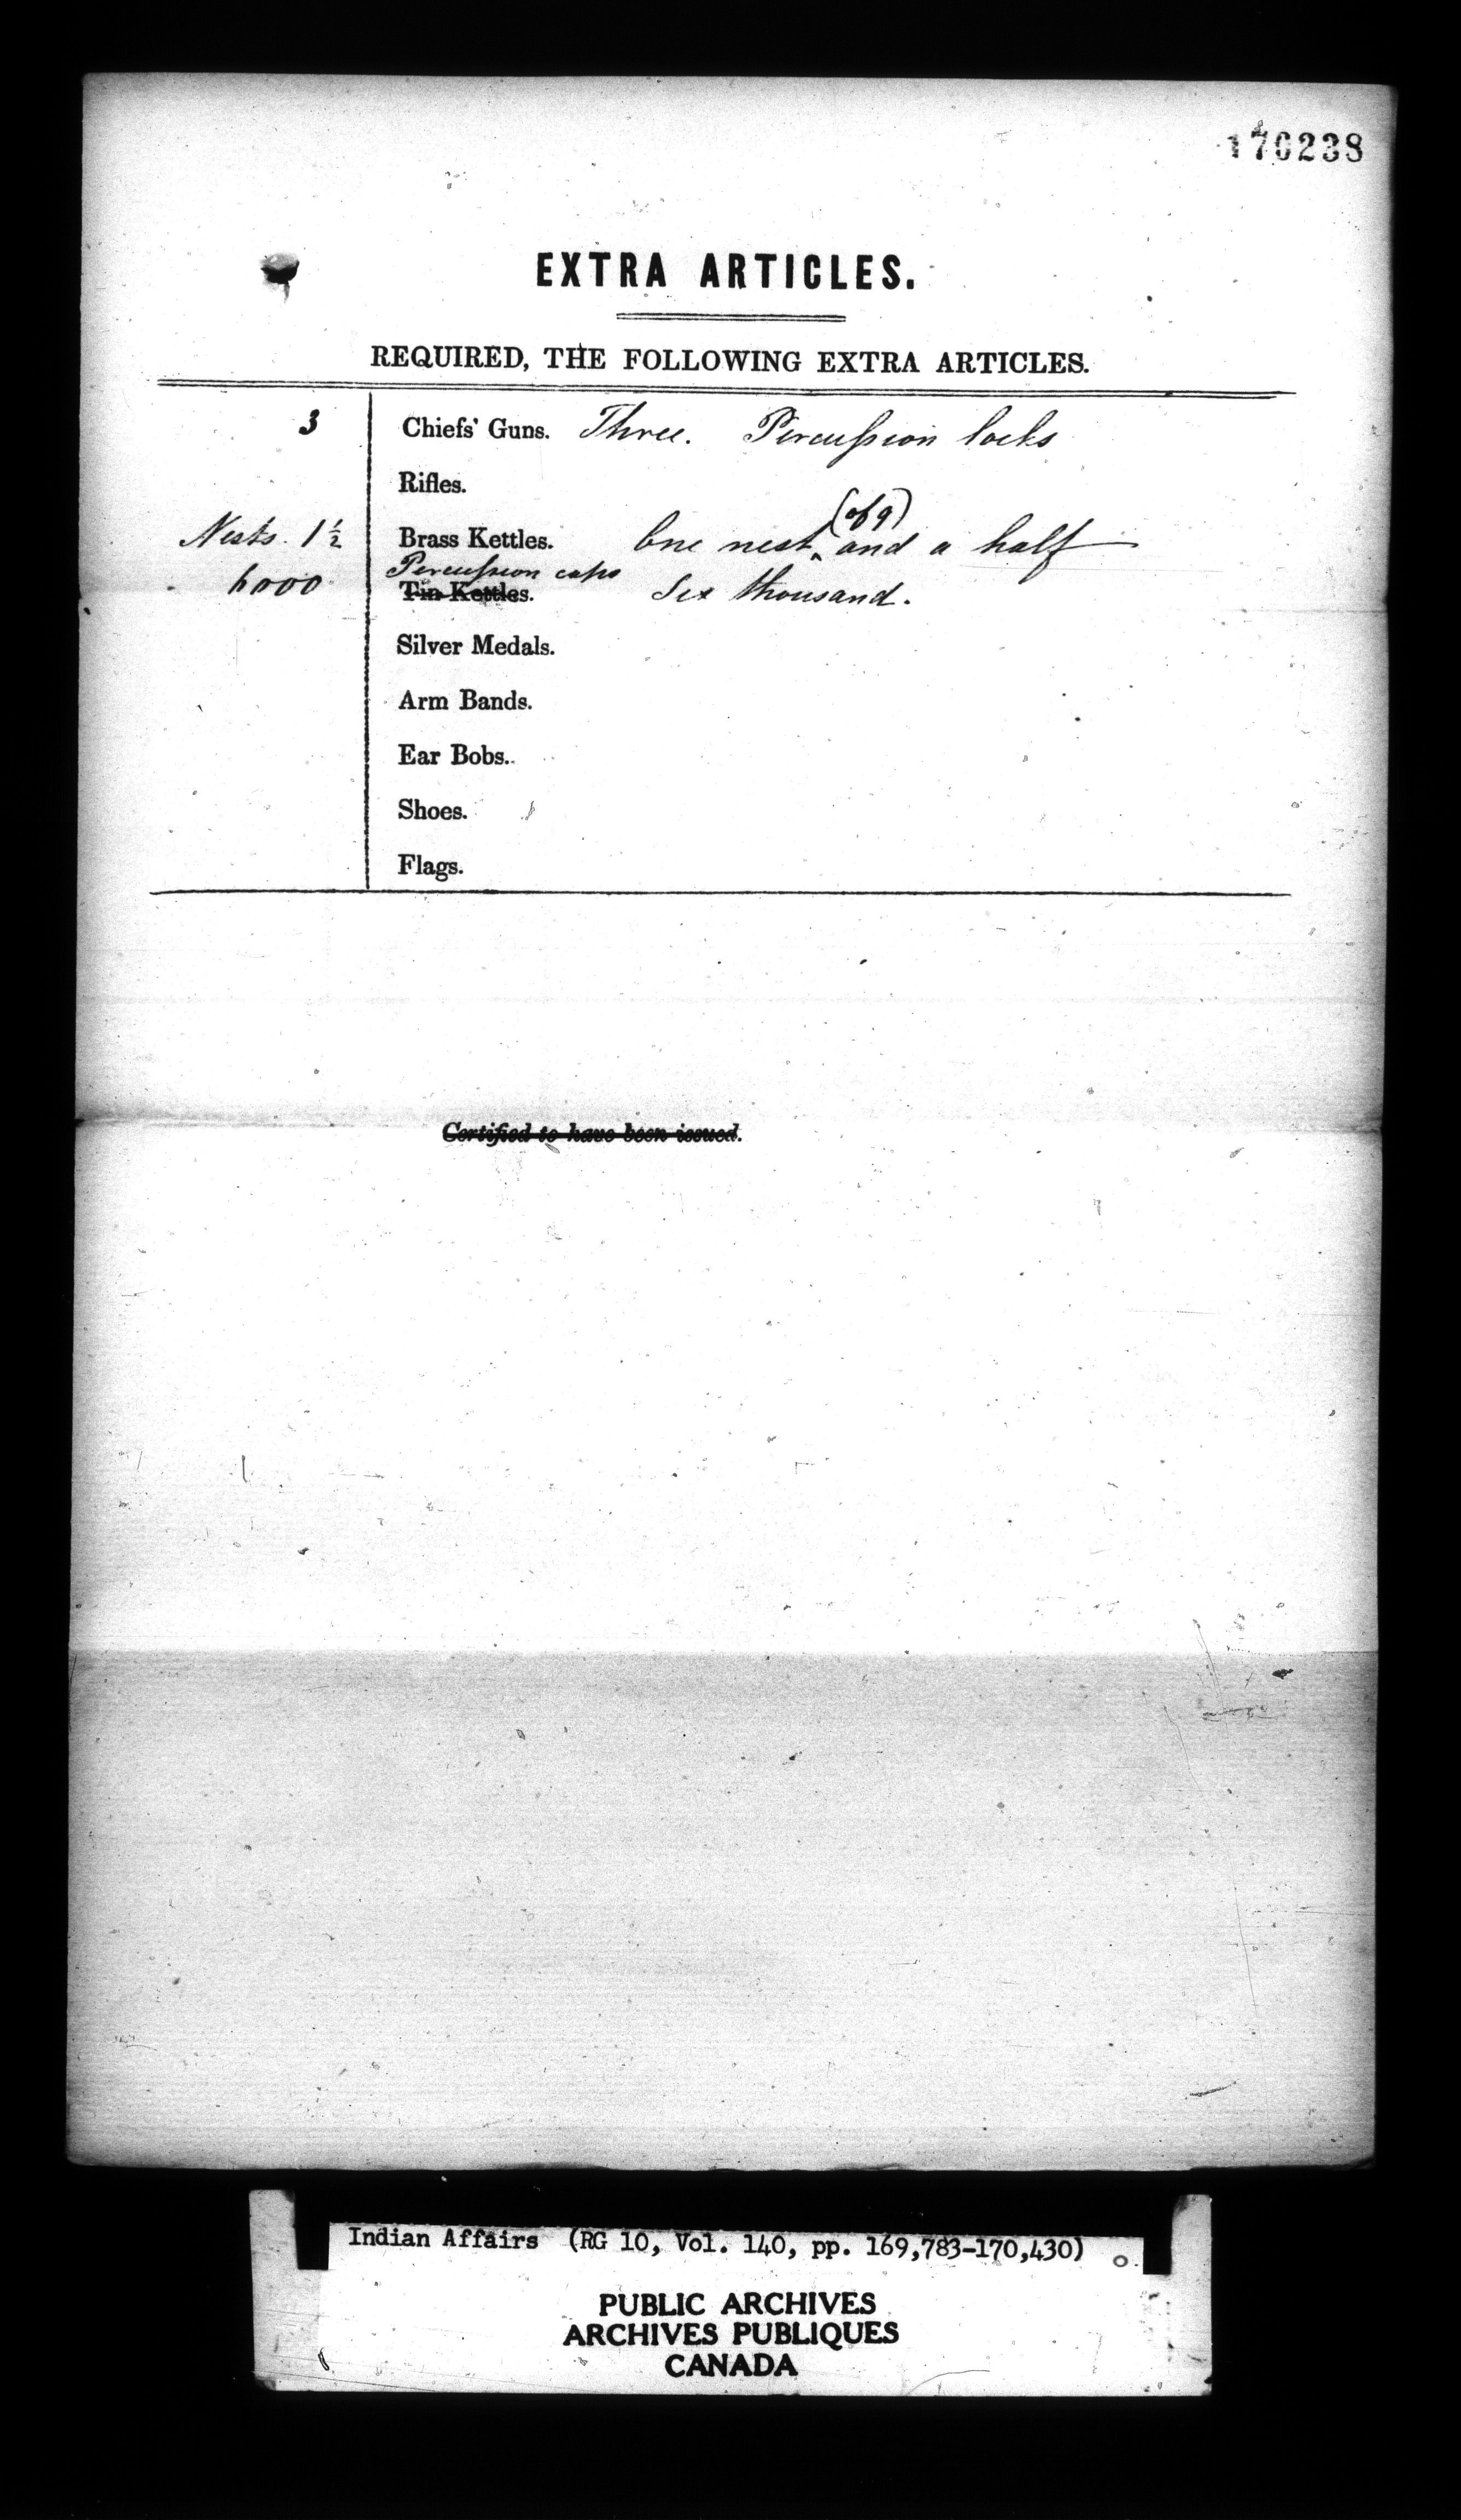 170238
EXTRA ARTICLES.
REQUIRED, THE FOLLOWING EXTRA ARTICLES.
3 Chiefs' Guns. Three. Percussion locks
Rifles.
(of 9)
Nests. 1½ Brass Kettles. One nest ‸ and a half
Percussion caps
6000 Tin Kettles. Six thousand.
Silver Medals.
Arm Bands.
Ear Bobs.
Shoes.
Flags.
Certified to have been issued.
Indian Affairs (RG 10, Vol. 140, pp. 169,783-170,430)
PUBLIC ARCHIVES
ARCHIVES PUBLIQUES
CANADA